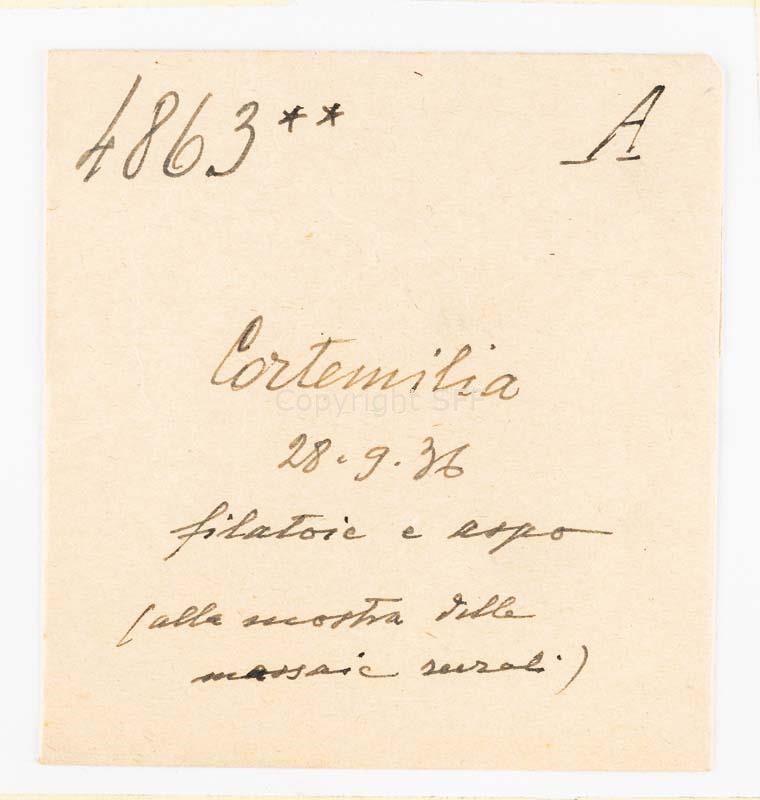 4863** A
Cortemilia
Copyright SFF
28.9.36
filatoie e aspo
(alla mostra delle
massaie rurali)